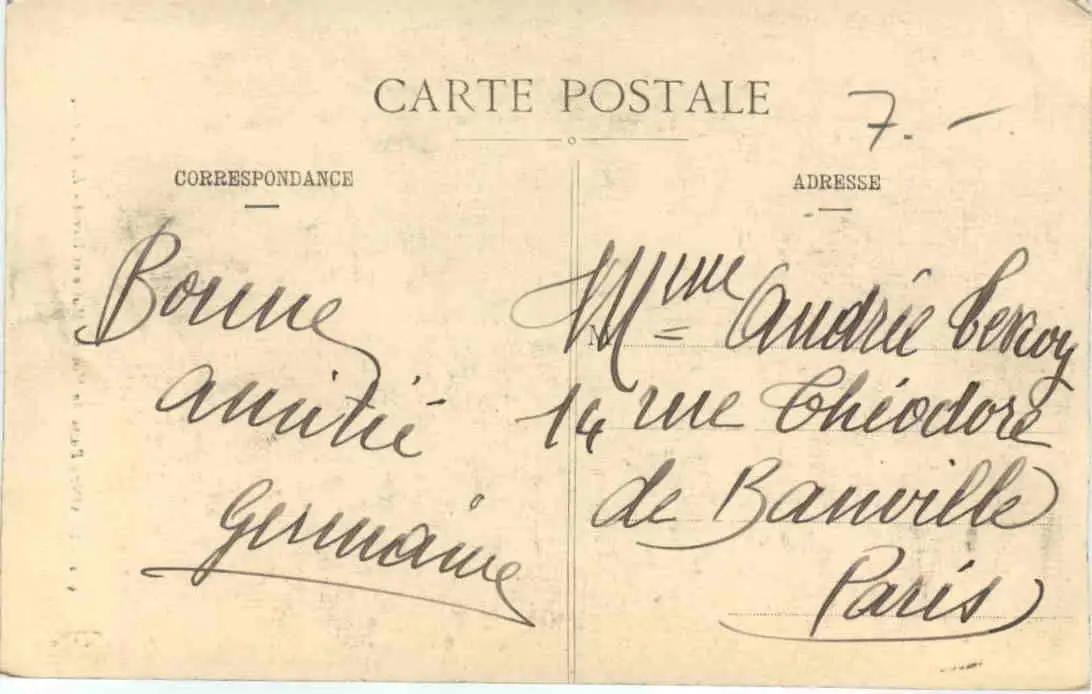 CARTE POSTALE
7.-
CORRESPONDANCE
Bonne
amitié
Germaine
ADRESSE
Mme Andrée
14 rue Théodore
de Banville
Paris